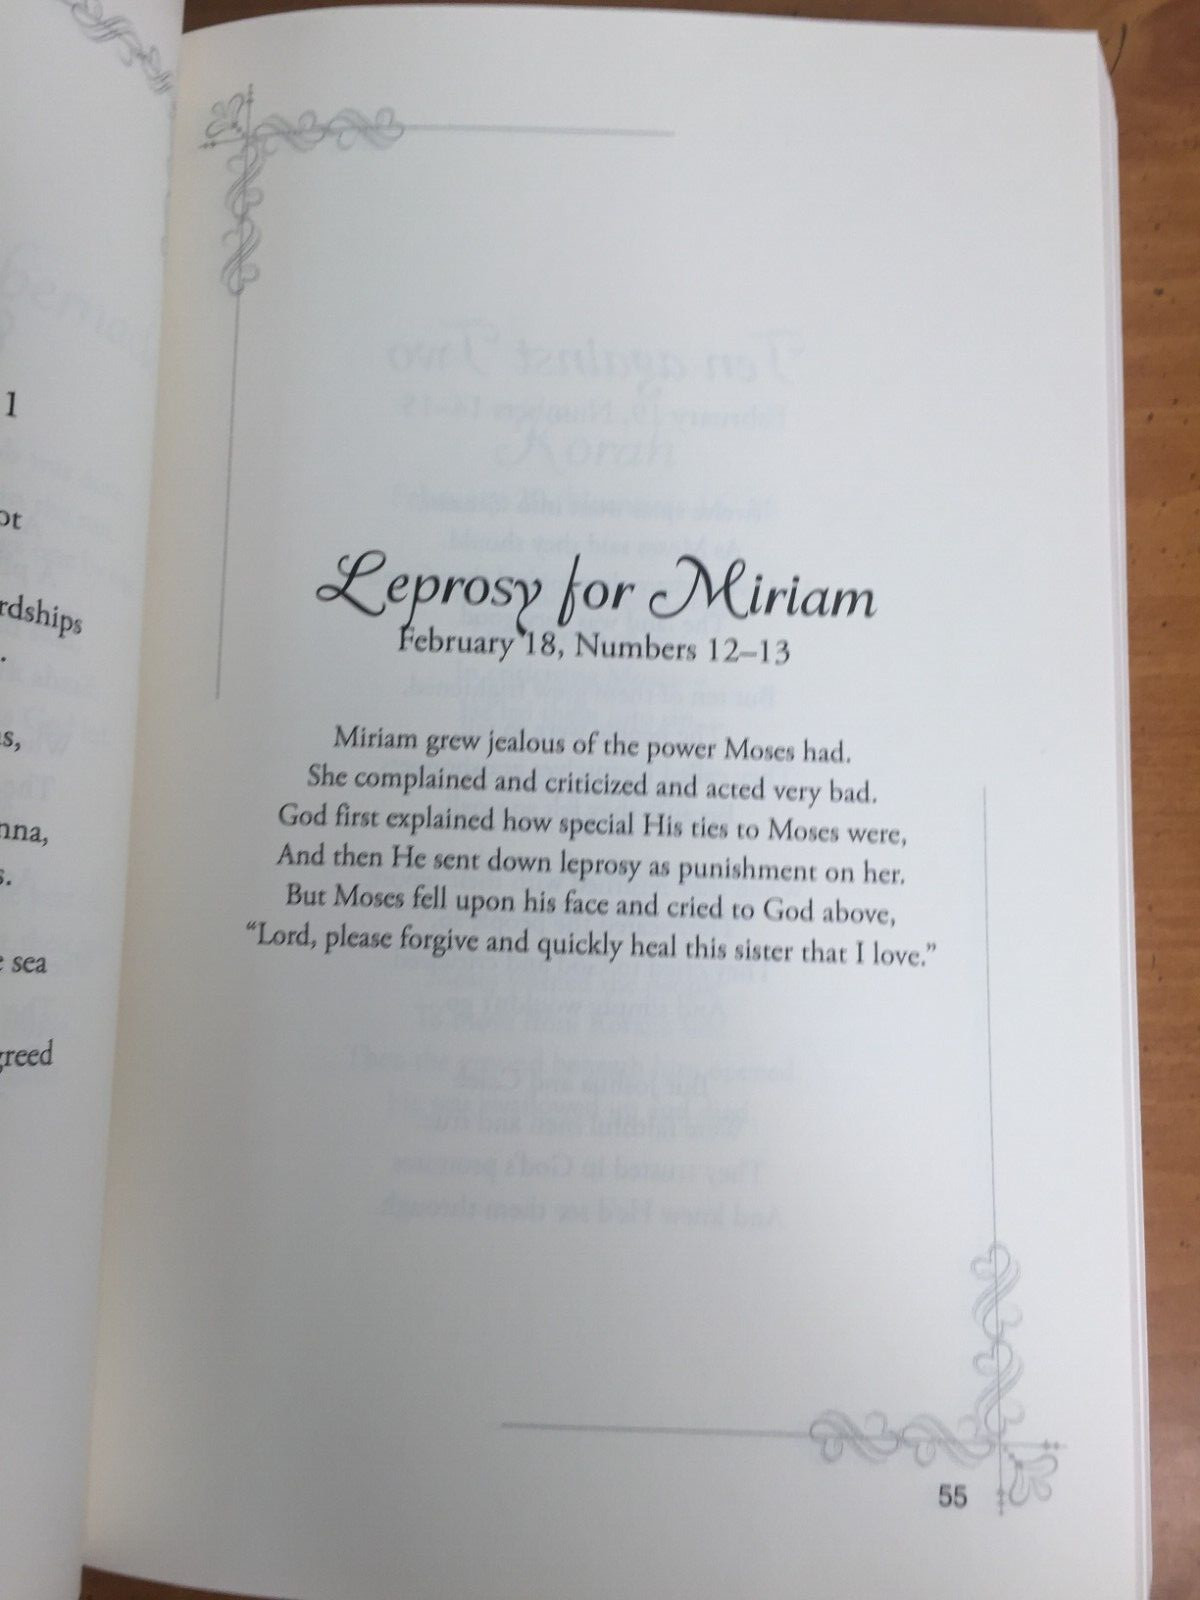 1
ot
rdships
.
s,
nna,
s.
e sea
greed
Leprosy for Miriam
February 18, Numbers 12–13
Miriam grew jealous of the power Moses had.
She complained and criticized and acted very bad.
God first explained how special His ties to Moses were,
And then He sent down leprosy as punishment on her.
But Moses fell upon his face and cried to God above,
“Lord, please forgive and quickly heal this sister that I love.”
55